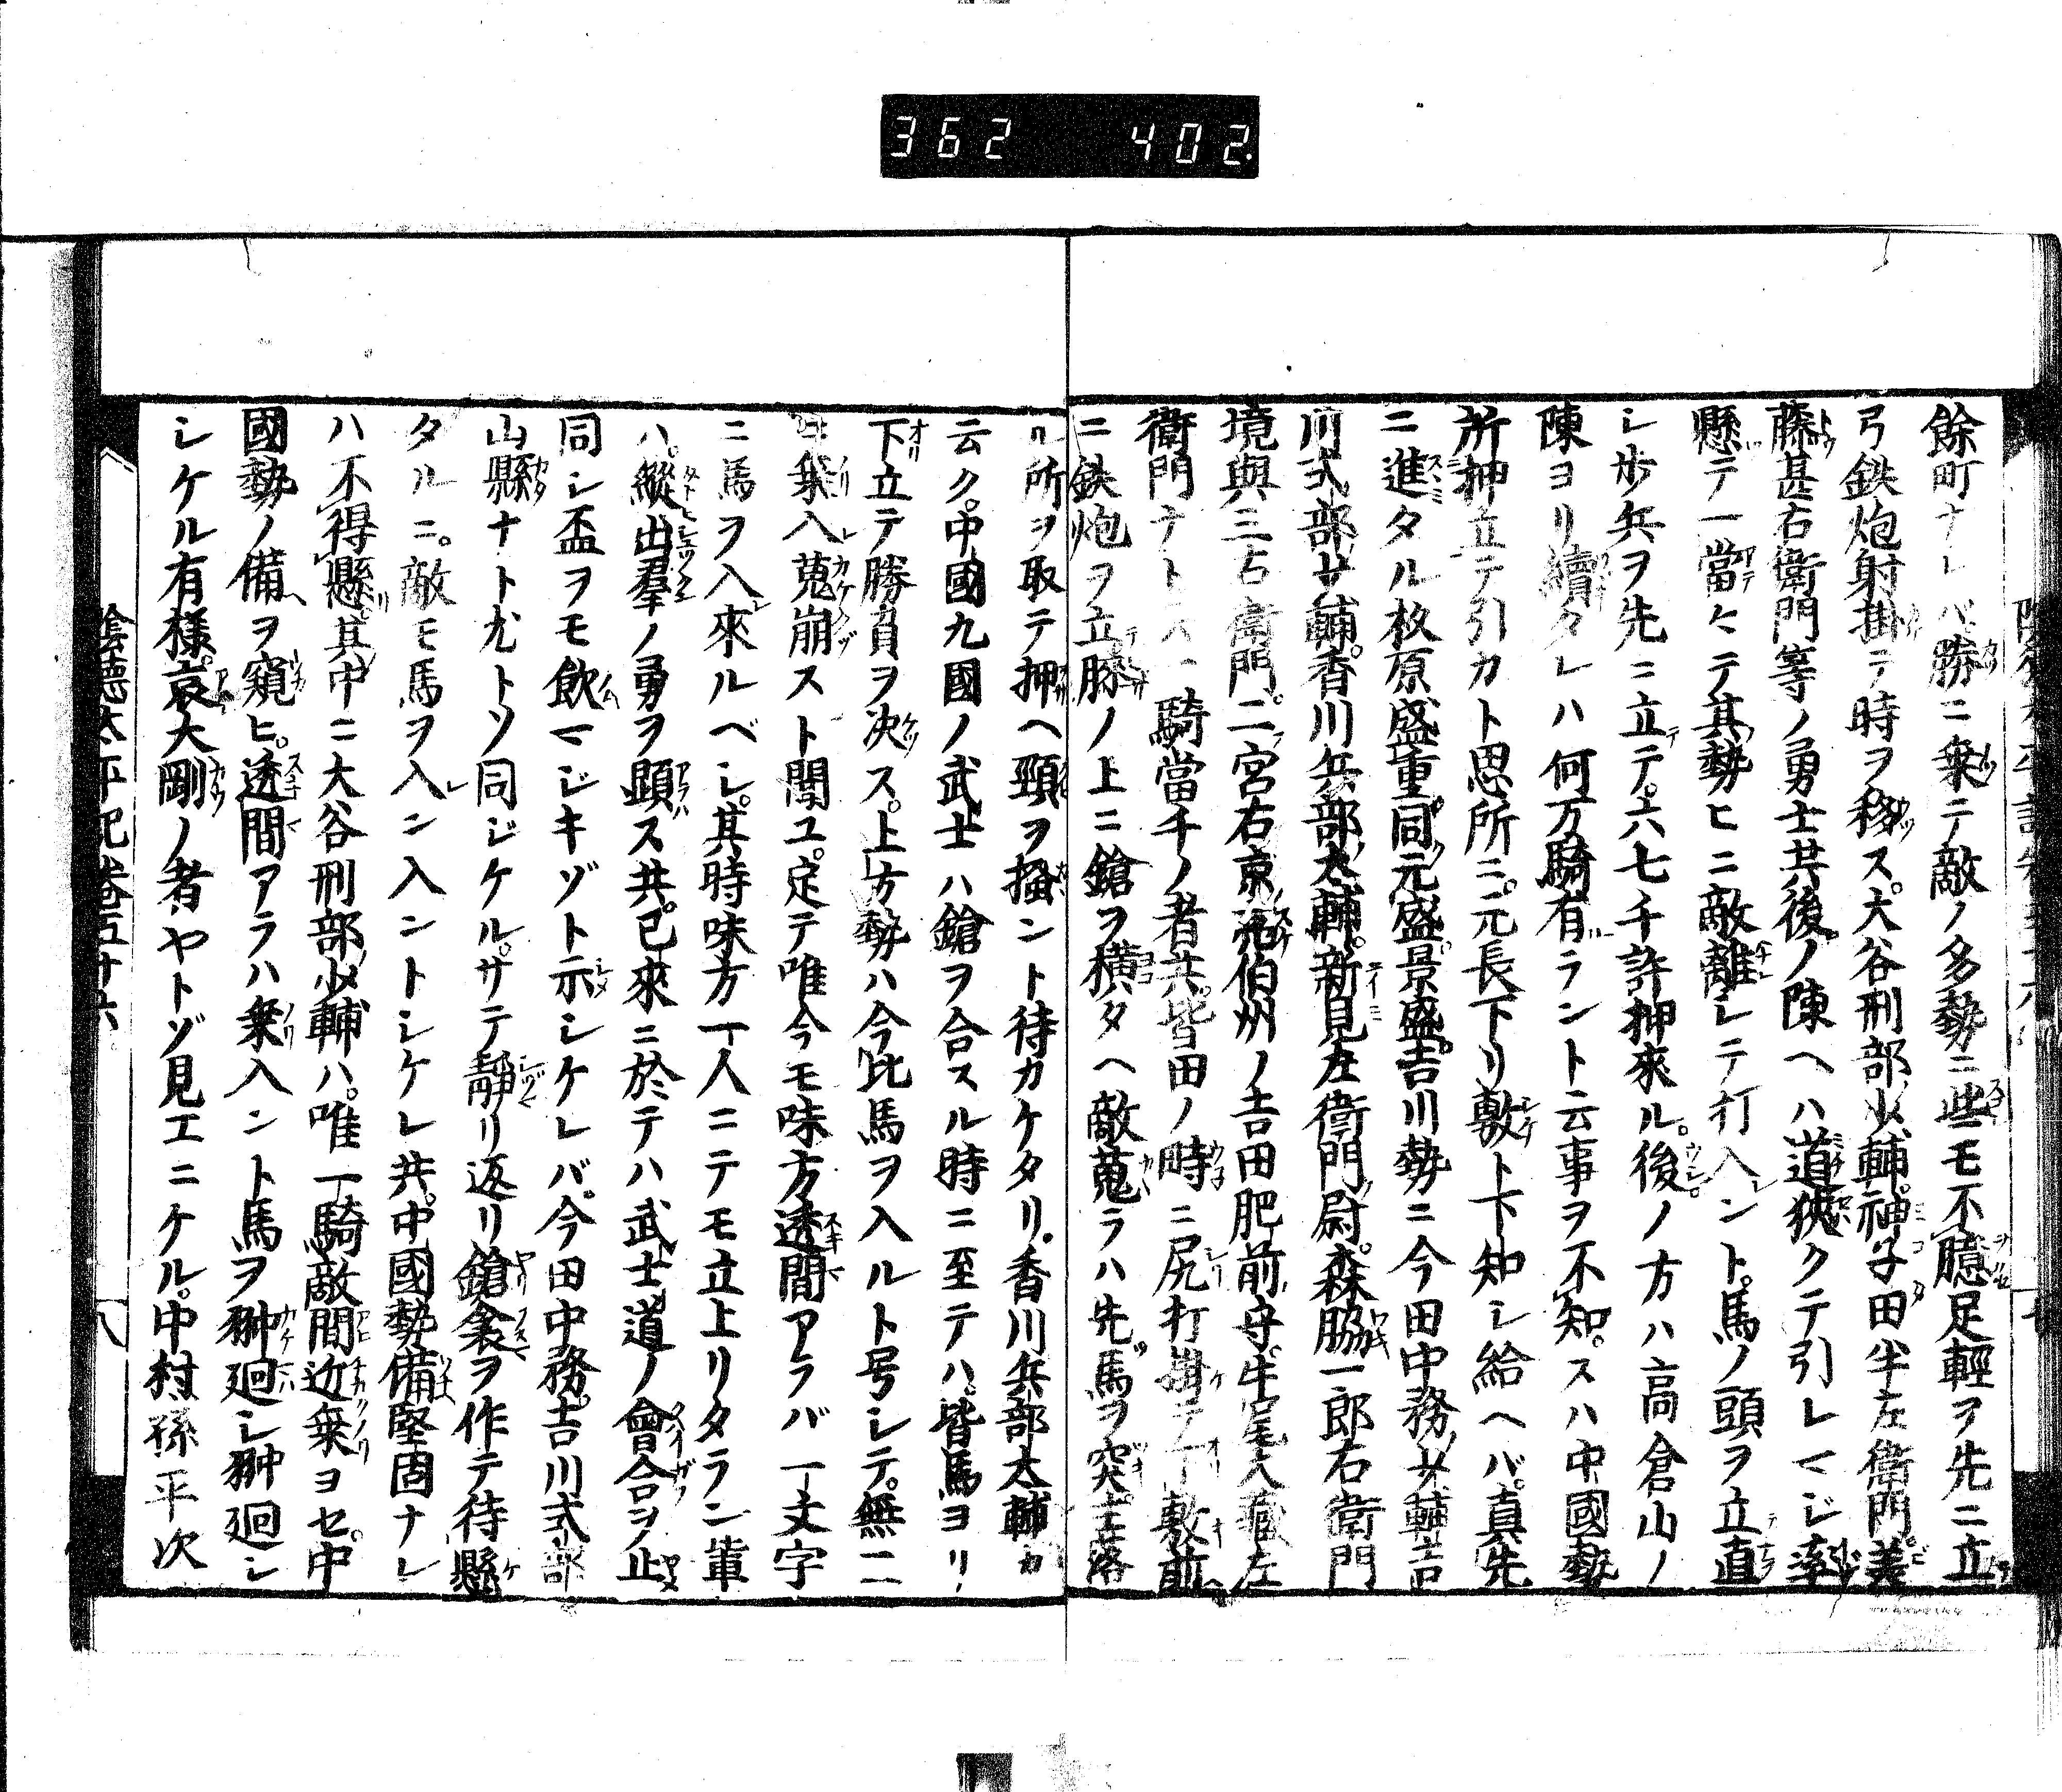 362 402.
餘町ナレバ勝ニ乗テ敵ノ多勢ニ些モ不臆足輕ヲ先ニ立
弓鉄炮射掛テ時ヲ移ス。大谷刑部少輔。神子田半左衛門。美
藤甚右衛門等ノ勇士其後ノ陳ヘハ道狹クテ引レマジ率
懸テ一當アテヽ其勢ヒニ敵離レテ打入ント。馬ノ頭ヲ立直
シ歩兵ヲ先ニ立テ。六七千許押來ル。後ノ方ハ高倉山ノ
陳ヨリ續タレハ何万騎有ラント云事ヲ不知。スハ中國勢
所押立テ引カト思所ニ。元長下リ敷ト下知シ給ヘバ。真先
ニ進タル杦原盛重同元盛。景盛。吉川勢ニ今田中務少輔吉
川式部少輔。香川兵部太輔。新見左衛門尉。森脇一郎右衛門
境與三右衛門。二宮右京亮伯州ノ吉田肥前守。牛尾大藏左
衛門ナトハ一騎當千ノ者共。皆田ノ畤ニ尻打掛テ丁敷前
ニ鉄炮ヲ立膝ノ上ニ鎗ヲ横タヘ敵蒐ラハ先馬ヲ突其落
ル所ヲ取テ押ヘ頸ヲ掻ント待カケタリ。香川兵部太輔カ
云ク。中國九國ノ武士ハ鎗ヲ合スル時ニ至テハ。皆馬ヨリ
下立テ勝負ヲ决ス。上方勢ハ今比馬ヲ入ルト号シテ。無二
乗入蒐崩スト聞ユ。定テ唯今モ味方透間アラバ一文字
ニ馬ヲ入來ルベシ。其時味方一人ニテモ立上リタラン輩
ハ。縱出羣ノ勇ヲ顕ス共。已來ニ於テハ武士道ノ會合ヲ止
同シ盃ヲモ飲マジキゾト示シケレバ。今田中務。吉川式部
山縣ナト尤トソ同ジケル。サテ静リ返リ鎗衾ヲ作テ待懸
タルニ。敵モ馬ヲ入ン入ントシケレ共。中國勢備堅固ナレ
ハ不得懸。其中ニ大谷刑部少輔ハ。唯一騎敵間近乗ヨセ。中
國勢ノ備ヲ窺ヒ。透間アラハ乗入ント馬ヲ翀廻シ翀廻シ
シケル有様。哀大剛ノ者ヤトゾ見エニケル。中村孫平次
陰德太平記卷五十六 八